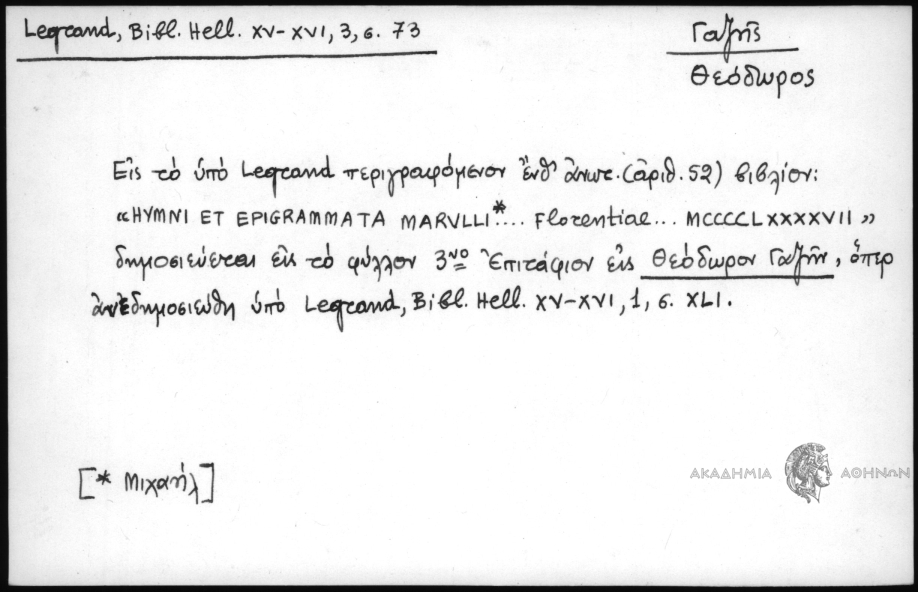 Legrand, Bibl. Hell. XV-XVI, 3, σ. 73
Γαζῆς
Θεόδωρος
Εἰς τὸ ὑπό Legrand περιγραφόμενον ἔνθ' ἄνωτ. (ἀριθ. 52) βιβλίον:
«HYMNI ET EPIGRAMMATA MARVLLI*.... Florentiae... MCCCCLXXXXVII»
δημοσιεύεται εἰς τὸ φύλλον 3νο Ἐπιτάφιον εἰς Θεόδωρον Γαζῆν, ὅπερ
ἀνεδημοσιεύθη ὑπό Legrand, Bibl. Hell. XV-XVI, 1, σ. XLI.
[* Μιχαήλ]
ΑΚΑΔΗΜΙΑ ΑΘΗΝΩΝ